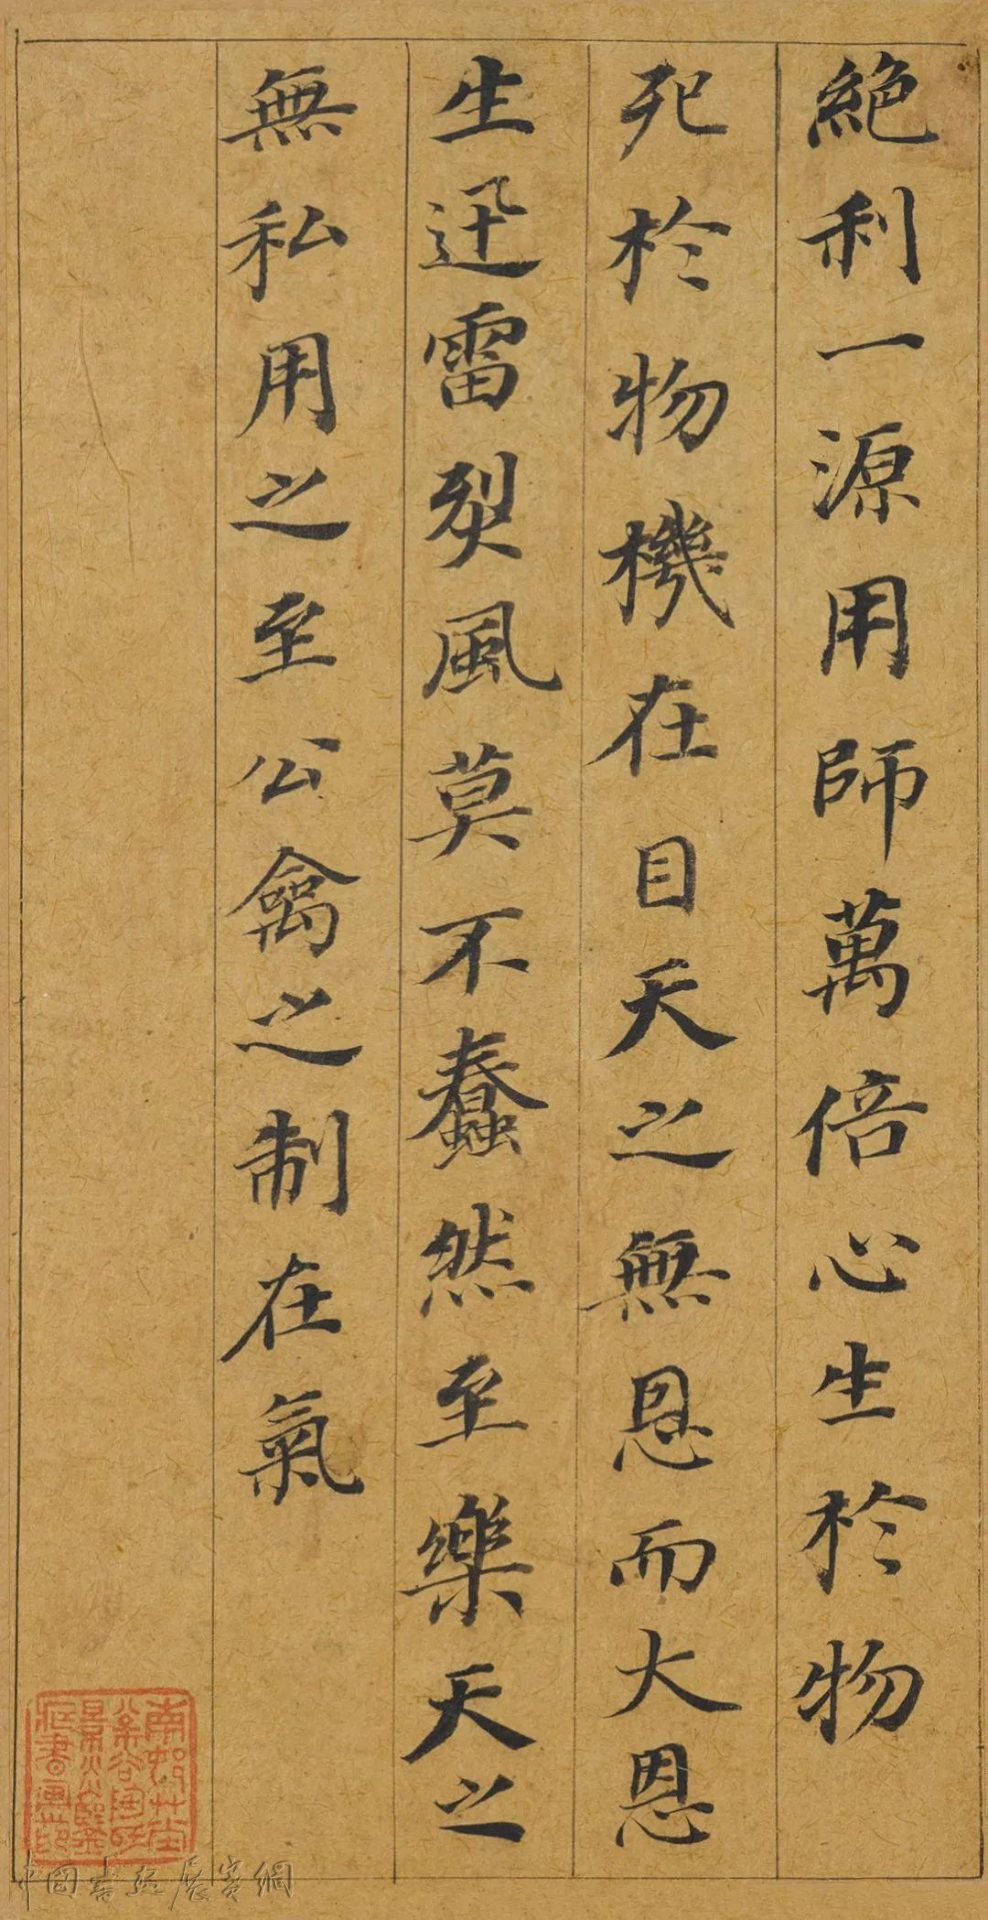 絶利一源用師萬倍心生於物
死於物機在目天之無恩而大恩
生迅雷烈風莫不蠢然至樂天之
無私用之至公禽之制在氣
中國書法展賽網